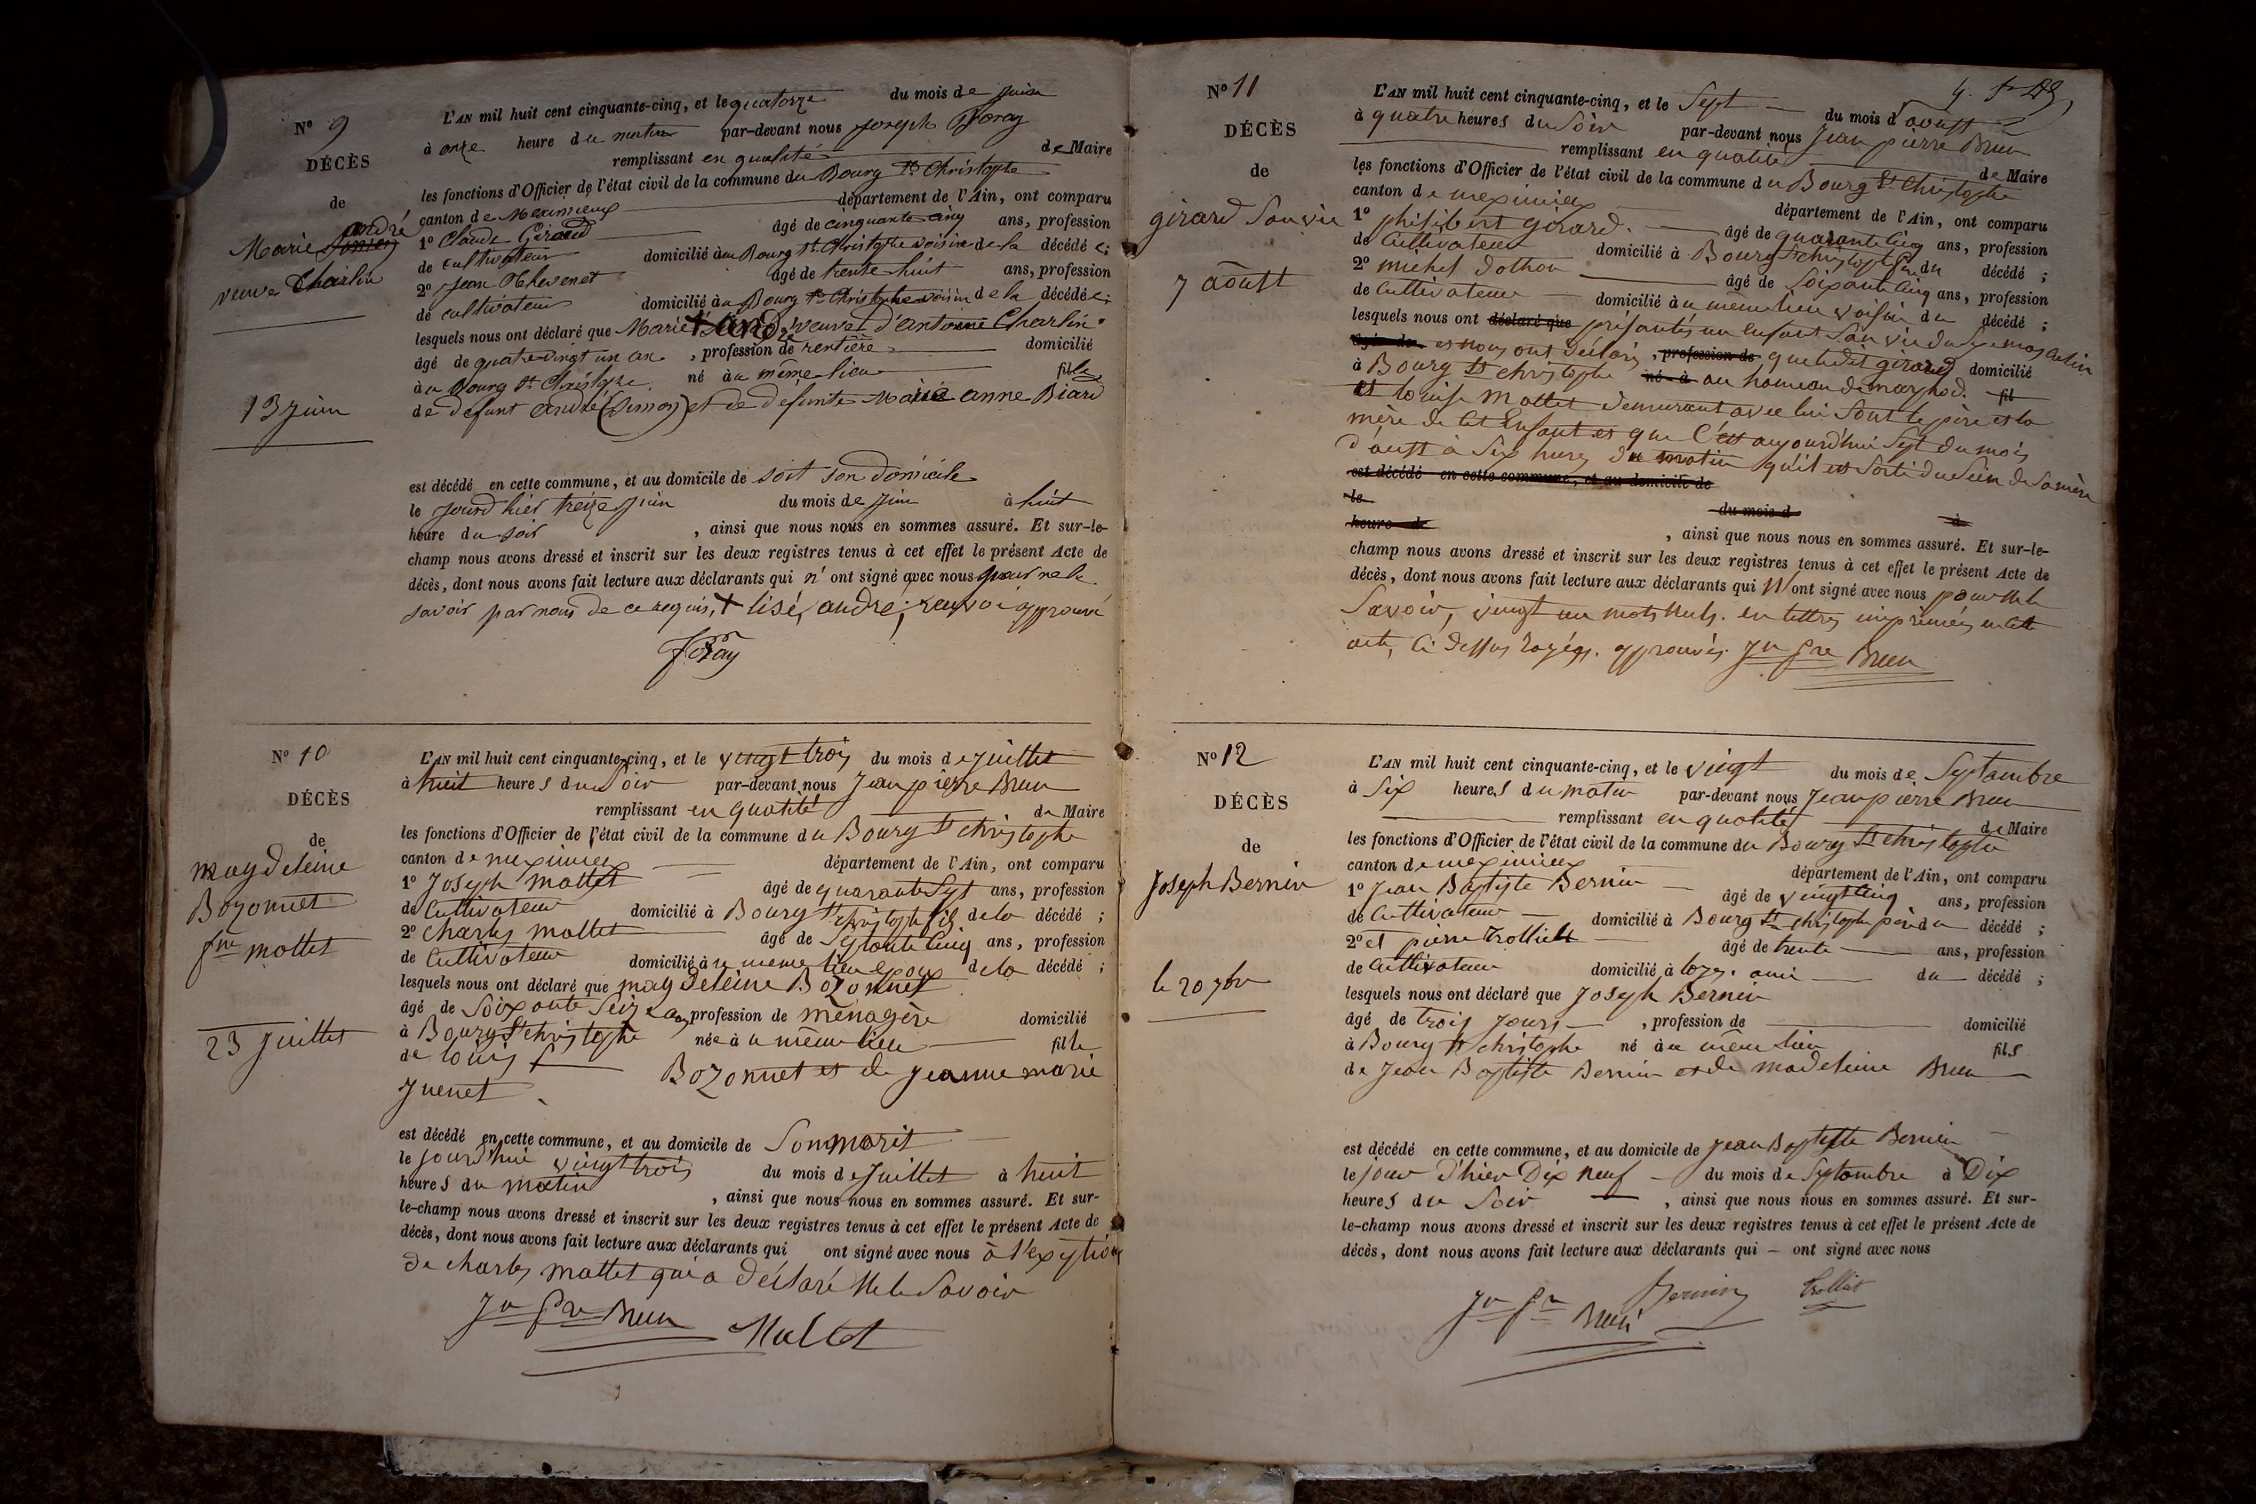 N° 9
DÉCÈS
de
Marie andré
veuve Charlin
13 juin
L'AN mil huit cent cinquante-cinq, et le quatorze du mois de juin
à onze heure du matin par-devant nous joseph Foray
remplissant en qualité de Maire
les fonctions d'Officier de l'état civil de la commune du Bourg St Christophe
canton de Meximieux département de l'Ain, ont comparu
1° Claude Girard âgé de cinquante cinq ans, profession
de cultivateur domicilié au Bourg St Christophe voisin de la décédée;
2° jean Thevenet âgé de trente huit ans, profession
de cultivateur domicilié au Bourg St Christophe voisin de la décédée;
lesquels nous ont déclaré que Marie veuve d'antoine Charlin
âgé de quatre-vingt un an, profession de rentière domicilié
à u Bourg St Christophe né à u même lieu fille
de défunt andré (Simon) et de défunte Marie anne Biard
est décédé en cette commune, et au domicile de soit son domicile
le jourd'hier treize juin du mois de juin à huit
heure du soir, ainsi que nous nous en sommes assuré. Et sur-le-
champ nous avons dressé et inscrit sur les deux registres tenus à cet effet le présent Acte de
décès, dont nous avons fait lecture aux déclarants qui n'ont signé avec nous pour ne le
savoir par nous de ce requis, + lisé, andré; renvoi approuvé
foray
N° 10
DÉCÈS
de
magdeleine
Bozonnet
fme mollet
23 juillet
L'AN mil huit cent cinquante-cinq, et le vingt trois du mois de juillet
à huit heures du Soir par-devant nous Jean pierre Brun
remplissant en qualité de Maire
les fonctions d'Officier de l'état civil de la commune du Bourg St christophe
canton de meximieux département de l'Ain, ont comparu
1° Joseph mollet âgé de quarante Sept ans, profession
de Cultivateur domicilié à Bourg St christophe fils de la décédé;
2° charles mollet âgé de Septante Cinq ans, profession
de Cultivateur domicilié à u meme lieu epoux de la décédé;
lesquels nous ont déclaré que magdeleine Bozonnet
âgé de Soixante Seize ans, profession de ménagère domicilié
à Bourg St christophe née à u même lieu fille
de louis Bozonnet et de jeanne marie
juenet
est décédé en cette commune, et au domicile de Son marit
le jourd'hui vingt trois du mois de juillet à huit
heures du matin, ainsi que nous nous en sommes assuré. Et sur-
le-champ nous avons dressé et inscrit sur les deux registres tenus à cet effet le présent Acte de
décès, dont nous avons fait lecture aux déclarants qui ont signé avec nous à l'exeption
de charles mollet qui a déclaré ne le Savoir
Jn Pre Brun Mollet
N° 11
DÉCÈS
de
girard Sans vie
7 aoust
L'AN mil huit cent cinquante-cinq, et le Sept du mois d'aoust
à quatre heures du Soir par-devant nous Jean pierre Brun
remplissant en qualité de Maire
les fonctions d'Officier de l'état civil de la commune du Bourg St christophe
canton de meximieux département de l'Ain, ont comparu
1° philibert girard. âgé de quarante Cinq ans, profession
de Cultivateur domicilié à Bourg St christophe du décédé;
2° michel dothon âgé de Soixante Cinq ans, profession
de Cultivateur domicilié à u même lieu voisin du décédé;
lesquels nous ont déclaré que présentés un enfant Sans vie du Sexe masculin
âgé de et nous ont déclaré, profession de que ledit girard domicilié
à Bourg St christophe né à au hameau de fil
et louise Mollet demurant avec lui Sont le père et la
mère de Cet Enfant et que C'est aujourd'hui Sept du mois
d'aoust à Six heures du matin qu'il est Sorti du Sein de Sa mère
est décédé en cette commune, et au domicile de
le du mois d à
heure de, ainsi que nous nous en sommes assuré. Et sur-le-
champ nous avons dressé et inscrit sur les deux registres tenus à cet effet le présent Acte de
décès, dont nous avons fait lecture aux déclarants qui N'ont signé avec nous pour ne le
Savoir, vingt un mots Nuls. en lettres imprimées en Cet
acte, Ci dessus rayés. approuvés. Jn Pre Brun
N° 12
DÉCÈS
de
Joseph Bernin
le 20 7bre
L'AN mil huit cent cinquante-cinq, et le vingt du mois de Septambre
à Six heures du matin par-devant nous Jean pierre Brun
remplissant en qualité de Maire
les fonctions d'Officier de l'état civil de la commune du Bourg St christophe
canton de meximieux département de l'Ain, ont comparu
1° Jean Baptiste Bernin âgé de vingt Cinq ans, profession
de Cultivateur domicilié à Bourg St christophe père du décédé;
2° et pierre Trolliet âgé de trente ans, profession
de Cultivateur domicilié à loyes. ami du décédé;
lesquels nous ont déclaré que Joseph Bernin
âgé de trois jours, profession de domicilié
à Bourg St christophe né à u même lieu fils
de Jean Baptiste Bernin et de madeleine Brun
est décédé en cette commune, et au domicile de Jean Baptiste Bernin
le jour d'hier Dix neuf du mois de Septambre à Dix
heures du Soir, ainsi que nous nous en sommes assuré. Et sur-
le-champ nous avons dressé et inscrit sur les deux registres tenus à cet effet le présent Acte de
décès, dont nous avons fait lecture aux déclarants qui – ont signé avec nous
Jn Pre Brun Bernin Trolliet